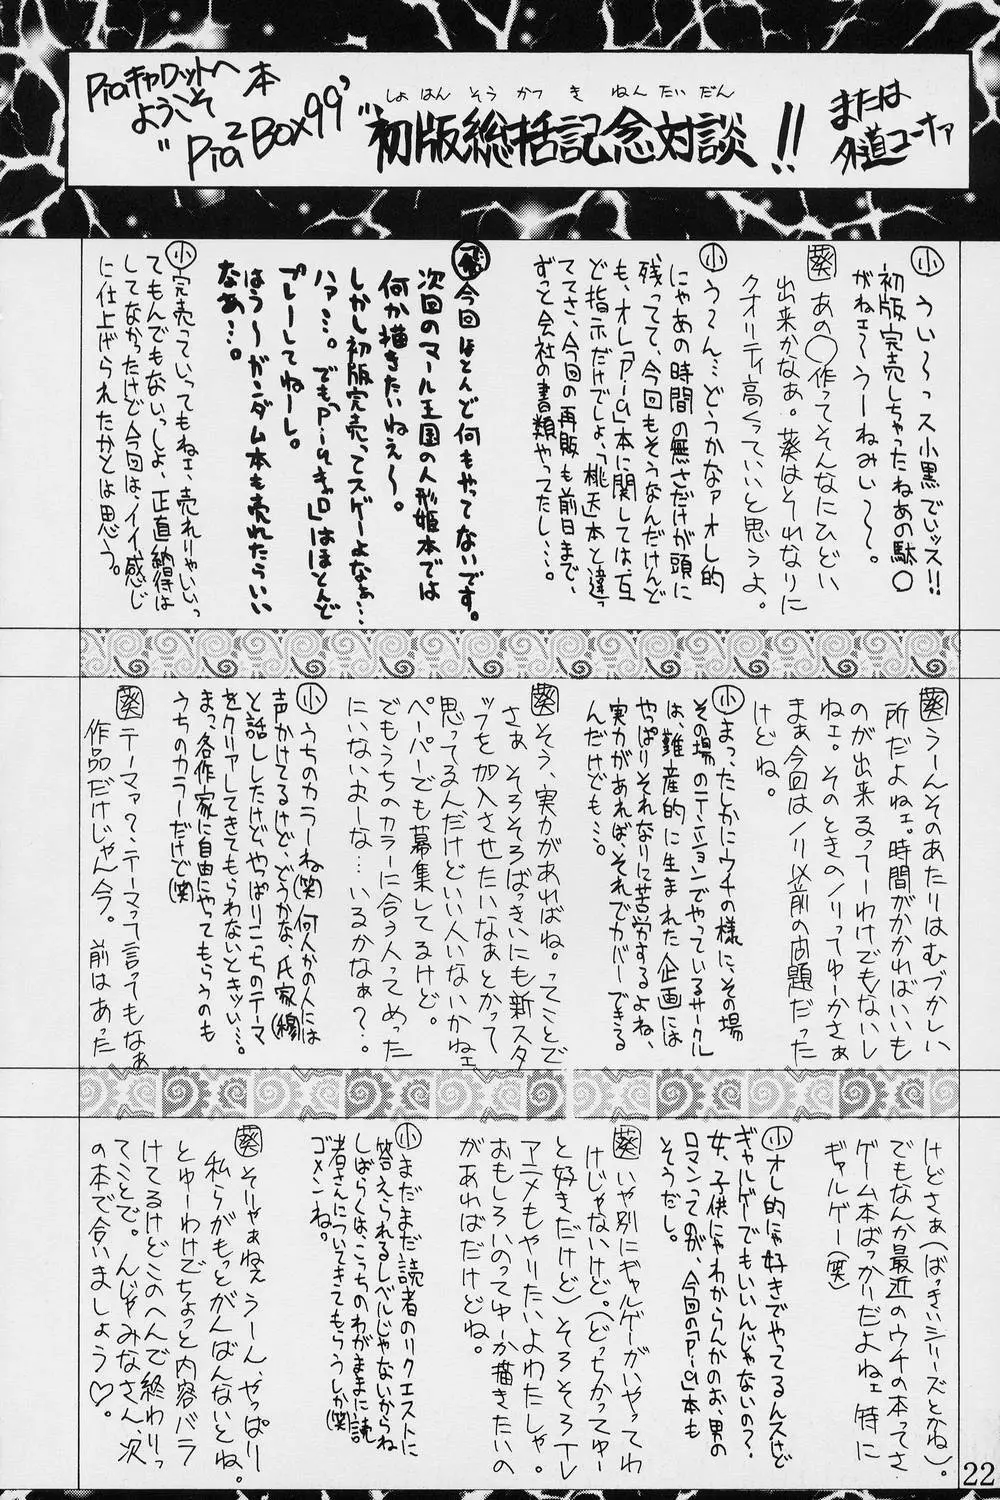 Piaキャロットへ
ようこそ
本
"Pia²Box99'"
しょはんそうかつきねんたいだん
初版総括記念対談!!
または
外道コーナァ
小 うい〜っス小黒でいッス!!
初版完売しちゃったねあの駄○
がねェ〜うーねみい〜〜。
葵 あの○作ってそんなにひどい
出来かなぁ。葵はそれなりに
クオリティ高くっていいと思うよ。
小 う〜ん…どうかなァオレ的
にゃあの時間の無さだけが頭に
残ってて、今回もそうなんだけんど
も、オレ「Pia」本に関しては、互
ど指示だけでしょ、「桃天」本と違っ
ててさ、今回の再販も前日まで、
ずっと会社の書類やってたし…。
今回ほとんど何もやってないです。
次回のマール王国の人形姫本では
何か描きたいねえ〜。
しかし初版完売ってスゲーよなぁ…
ハァ…。でも「Piaキャロ」はほとんど
プレーしてねーし。
はう〜ガンダム本も売れたらいい
なあ…。
小 完売っていってもねェ、売れりゃいいっ
てもんでもないっしょ、正直納得は
してなかったけど今回は、イイ感じ
に仕上げられたかとは思う。
葵 うーんそのあたりはむづかしい
所だよねェ。時間がかかればいいも
のが出来るってーわけでもないし
ねェ。そのときのノリってゆーかさぁ
まぁ今回はノリ以前の問題だった
けどね。
小 まったしかにウチの様に、その場
その場のテンションでやっているサークル
は、難産的に生まれた企画には
やっぱりそれなりに苦労するよね、
実力があれば、それでカバーできる
んだけども…。
葵 そう、実力があればね。ってことで
さぁ そろそろばっきいにも新スタ
ッフを加入させたいなぁとかって
思ってるんだけどいい人いないかねェ
ペーパーでも募集してるけど。
でもうちのカラーに合う人ってめった
にいないよーな…いるかなぁ?…。
小 うちのカラーね(笑)何人かの人には
声かけてるけど、どうかな、氏家(穆)
と話ししたけど、やっぱりこっちのテーマ
をクリアしてきてもらわないとキツい…。
まっ、各作家に自由にやってもらうのも
うちのカラーだけど(笑)
葵 テーマァ?、テーマって言ってもなぁ
作品だけじゃん今。前はあった
けどさぁ(ばっきいシリーズとかね)。
でもなんか最近のウチの本ってさ
ゲーム本ばっかりだよねェ 特に
ギャルゲー(笑)
小 オレ的にゃ好きでやってるんスけど
ギャルゲーでもいいんじゃないの?、
女、子供にゃわからんかのお、男の
ロマンってのが、今回の「Pia」本も
そうだし。
葵 いや別にギャルゲーがいやってわ
けじゃないけど。(どっちかってゆー
と好きだけど)そろそろTレ
アニメもやりたいよわたしゃ。
おもしろいのってゆーか描きたいの
があればだけどね。
小 まだまだ読者のリクエストに
答えられるレベルじゃないからね
しばらくは、こっちのわがままに読
者さんについてきてもらうしか(笑)
ゴメンね。
葵 そりゃぁねぇうーん、やっぱり
私らがもっとがんばんないとね。
とゆーわけでちょっと内容バラ
けてるけどこのへんで終わりっ
てことで。んじゃみなさん、次
の本で合いましょう♡。
22